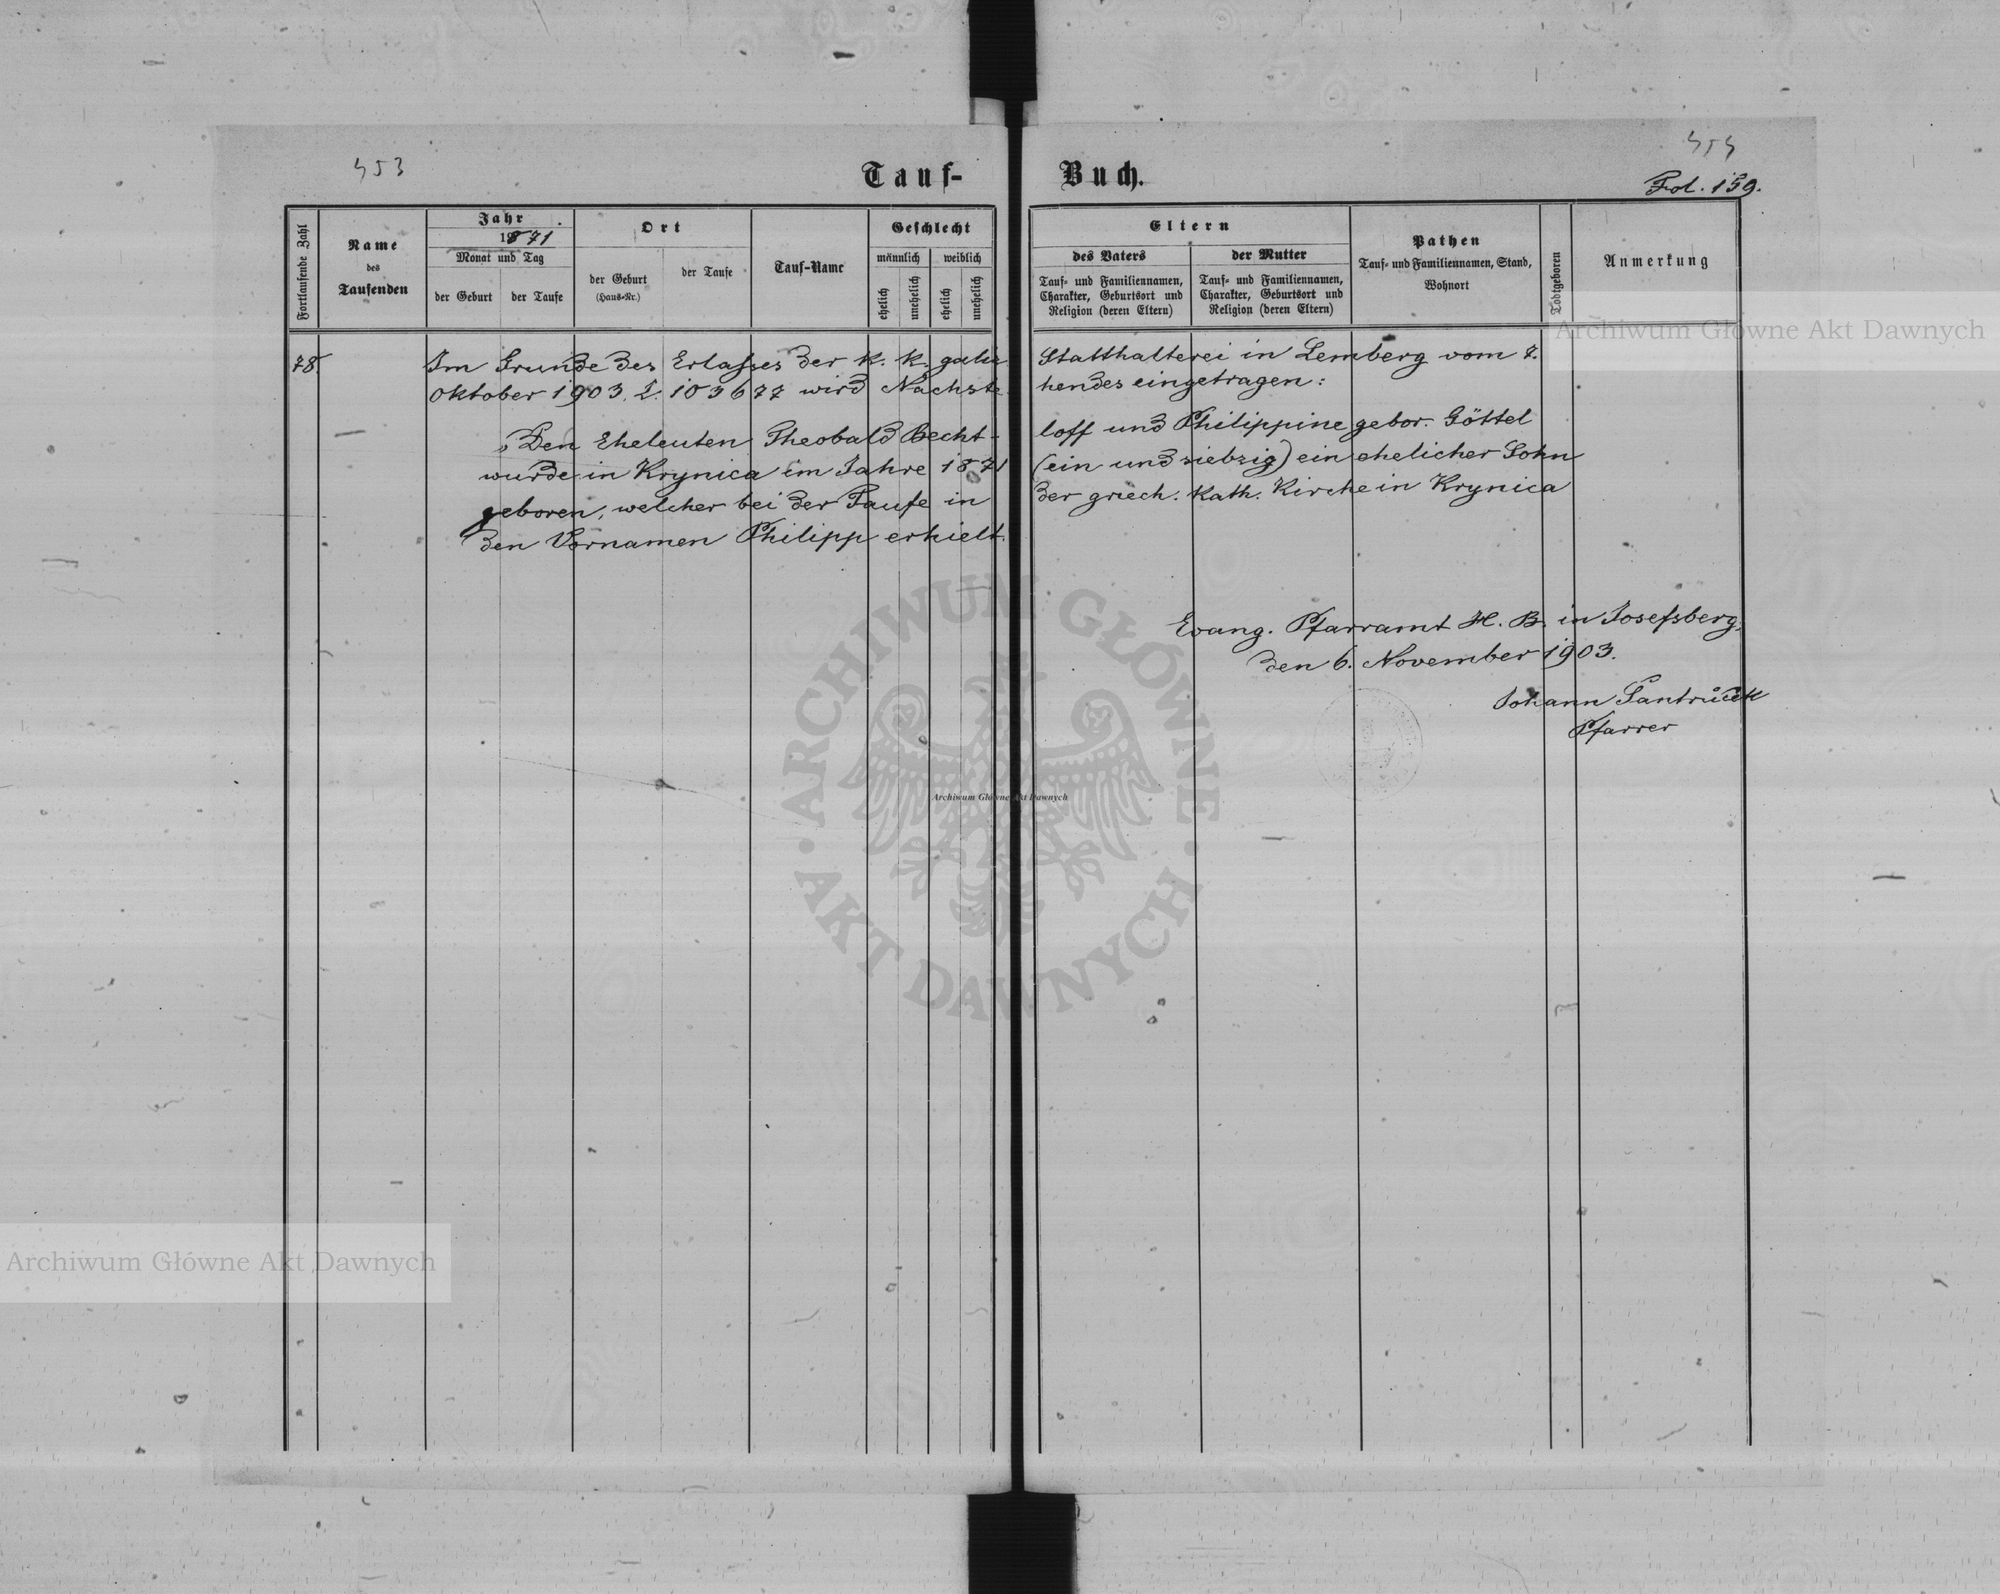 453
454
Tauf-Buch.
Fol. 159.
Fortlaufende Zahl
Name
des
Taufenden
Jahr
1871.
Monat und Tag
der Geburt
der Taufe
Ort
der Geburt
(Haus-Nr.)
der Taufe
Tauf-Name
Geschlecht
männlich
weiblich
ehelich
unehelich
ehelich
unehelich
Eltern
des Vaters
Tauf- und Familiennamen,
Charakter, Geburtsort und
Religion (deren Eltern)
der Mutter
Tauf- und Familiennamen,
Charakter, Geburtsort und
Religion (deren Eltern)
Pathen
Tauf- und Familiennamen, Stand,
Wohnort
Todtgeboren
Anmerkung
78. Im Grunde des Erlasses der k. k. galiz. Statthalterei in Lemberg vom 7.
Oktober 1903. Z. 103677 wird Nachste hendes eingetragen:
Den Eheleuten Theobald Becht- loff und Philippine gebor. Göttel
wurde in Krynica im Jahre 1871 (ein und siebzig) ein ehelicher Sohn
geboren, welcher bei der Taufe in der griech. kath. Kirche in Krynica
den Vornamen Philipp erhielt.
Evang. Pfarramt H. B. in Josefsberg,
den 6. November 1903.
Johann
Pfarrer
Archiwum Główne Akt Dawnych
ARCHIWUM GŁÓWNE
AKT DAWNYCH
Archiwum Główne Akt Dawnych
Archiwum Główne Akt Dawnych